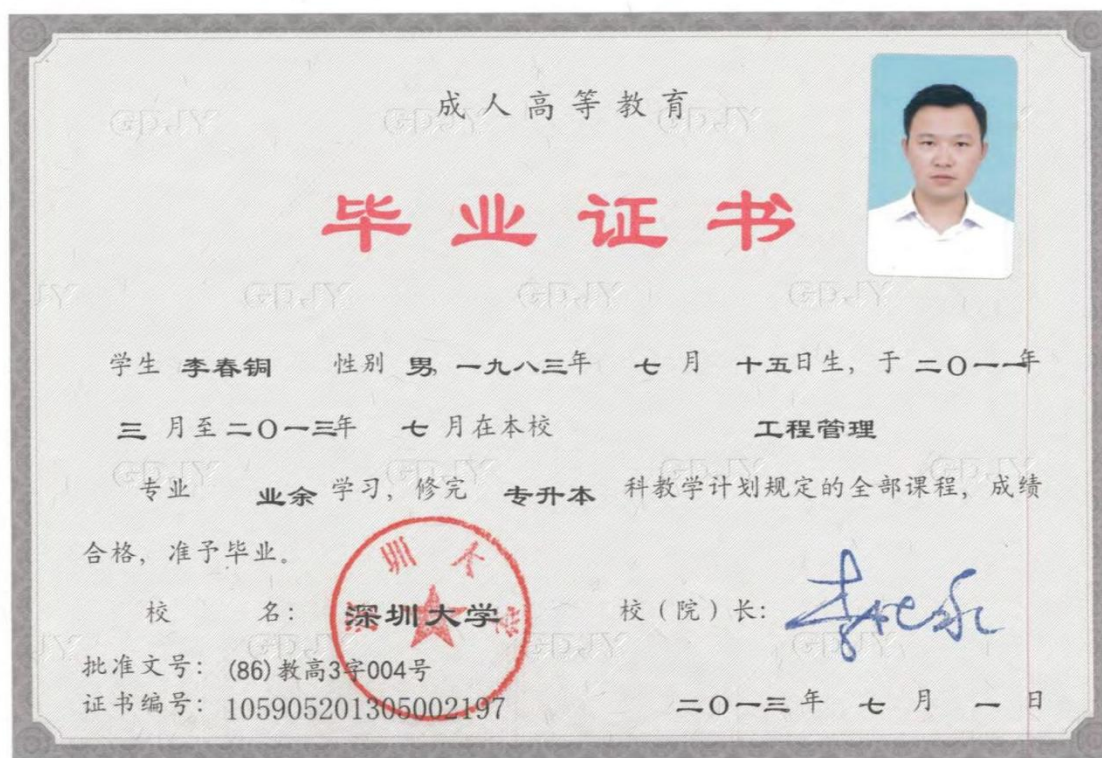 成人高等教育
毕业证书
学生 李春铜 性别 男，一九八三年 七 月 十五日生，于 二〇一一年
三 月至二〇一三年 七 月在本校 工程管理
专业 业余 学习，修完 专升本 科教学计划规定的全部课程，成绩
合格，准予毕业。
校 名：深圳大学 校（院）长：
批准文号：(86)教高3字004号
证书编号：105905201305002197 二〇一三年 七 月 一 日
GDJY